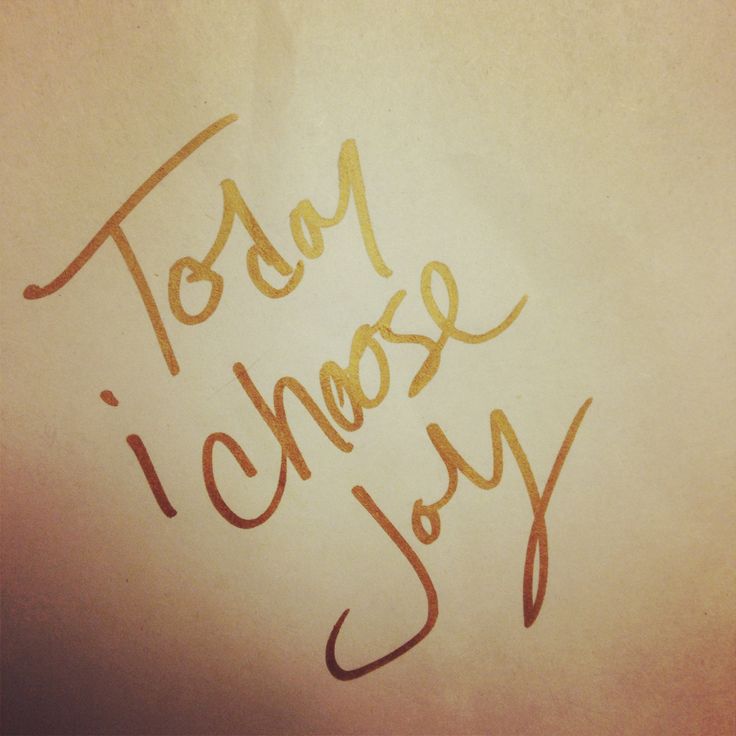 Today
i choose
Joy